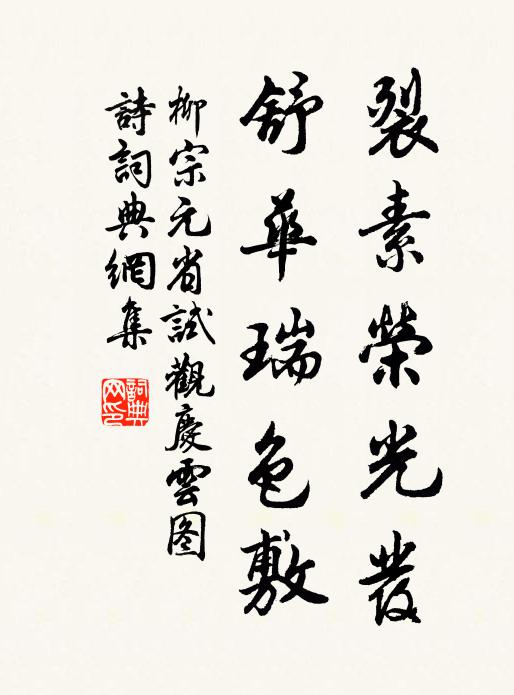 裂素榮光發
舒華瑞色敷
柳宗元省試觀慶雲图
詩詞典網集
詞典网印